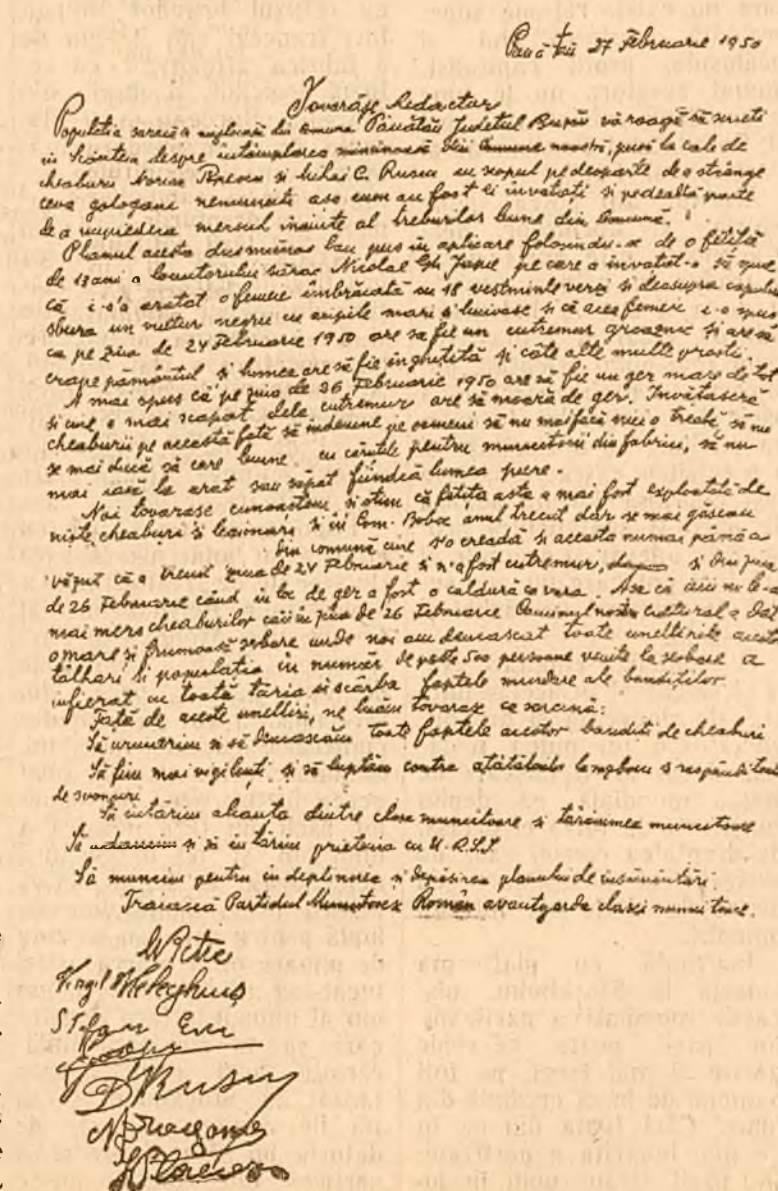 Pănătău 27 Februarie 1950
Tovarășe Redactor
Populația săracă a mijlocașă din comuna Pănătău Județul Buzău vă roagă să scrieti
in Scânteia despre întâmplarea mincinoasă din Comuna noastră, pusă la cale de
cheaburii Popescu si Mihai C. Rusu cu scopul pedeoparte de a strânge
ceva gologani nemunciti asa cum au fost ei invatați si pedealtă parte
de a impiedica mersul inainte al treburilor bune din Comună.
Planul acesta dusmănos lau pus in aplicare folosindu-se de o fetiță
de 13 ani a locuitorului sărac Nicolae Gh. pe care a invatat-o să spue
că i-s'a aratat o femeie îmbrăcată cu 18 vestminte verzi si deasupra capului
sbura un vultur negru cu aripile mari si luivase si că acea femeie i-o spus
ca pe ziua de 24 Februarie 1950 are sa fie un cutremur groaznic și are să
crape pământul și lumea are să fie ingrițită și câte alte multe prostii.
A mai spus că pe ziua de 26 Februarie 1950 are să fie un ger mare de tot
si cine o mai scapat dela cutremur are să moară de ger. Învătaseră
cheaburii pe această fată să indemne pe oameni să nu mai facă nici o treabă, să nu
se mai ducă să care lemne cu căruțele pentru muncitorii din fabrici, să nu
mai iasă la arat sau săpat fiindcă lumea pere.
Noi tovarase cunoastem si stim că fetița asta a mai fost exploatată de
niște cheaburi si legionari si in Com. Boboc anul trecut dar se mai găseau
din comună cine s'o creadă și aceasta numai până a
văzut că a trecut ziua de 24 Februarie si n'a fost cutremur, si din ziua
de 26 Februarie când in loc de ger a fost o caldură ca vara. Asa că aici nu le-a
mai mers cheaburilor căci in ziua de 26 Februarie Caminul nostru cultural a dat
o mare si frumoasă serbare unde noi am demascat toate uneltirile acestor
tâlhari si populația in număr de peste 500 persoane venite la serbare a
infierat cu toată tăria si scârba faptele murdare ale bandiților
Față de aceste uneltiri, ne luăm tovarase ca sarcină:
Să urmărim si să demascăm toate faptele acestor bandiți de cheaburi
Să fim mai vigilenți, și să luptăm contra atâtătorilor la razboiu
de svonuri
Să intărim alianța dintre clasa muncitoare si tărănimea muncitoare
Să adancim si să intărim prietenia cu U.R.S.S
Să muncim pentru indeplinirea si depăsirea planului de însământări
Traiască Partidul Muncitoresc Român avantgarda clasei muncitoare.
Virgil
Stefan
D Rusu